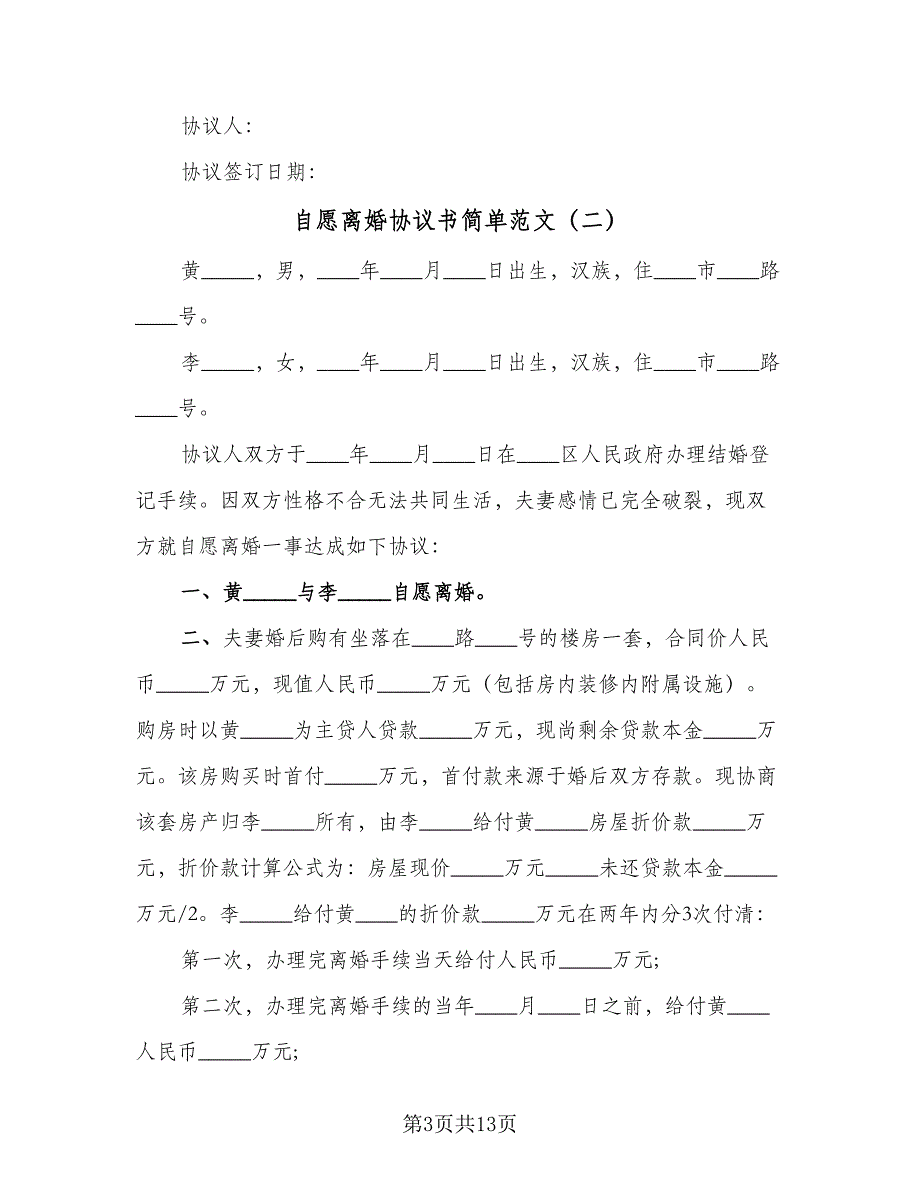 协议人：
协议签订日期：
自愿离婚协议书简单范文（二）
黄_____，男，____年____月____日出生，汉族，住____市____路
____号。
李_____，女，____年____月____日出生，汉族，住____市____路
____号。
协议人双方于____年____月____日在____区人民政府办理结婚登
记手续。因双方性格不合无法共同生活，夫妻感情已完全破裂，现双
方就自愿离婚一事达成如下协议：
一、黄_____与李_____自愿离婚。
二、夫妻婚后购有坐落在____路____号的楼房一套，合同价人民
币_____万元，现值人民币_____万元（包括房内装修内附属设施）。
购房时以黄_____为主贷人贷款_____万元，现尚剩余贷款本金_____万
元。该房购买时首付_____万元，首付款来源于婚后双方存款。现协商
该套房产归李_____所有，由李_____给付黄_____房屋折价款_____万
元，折价款计算公式为：房屋现价_____万元_____未还贷款本金_____
万元/2。李_____给付黄____的折价款_____万元在两年内分3次付清：
第一次，办理完离婚手续当天给付人民币_____万元;
第二次，办理完离婚手续的当年____月____日之前，给付黄____
人民币_____万元;
第3页共13页